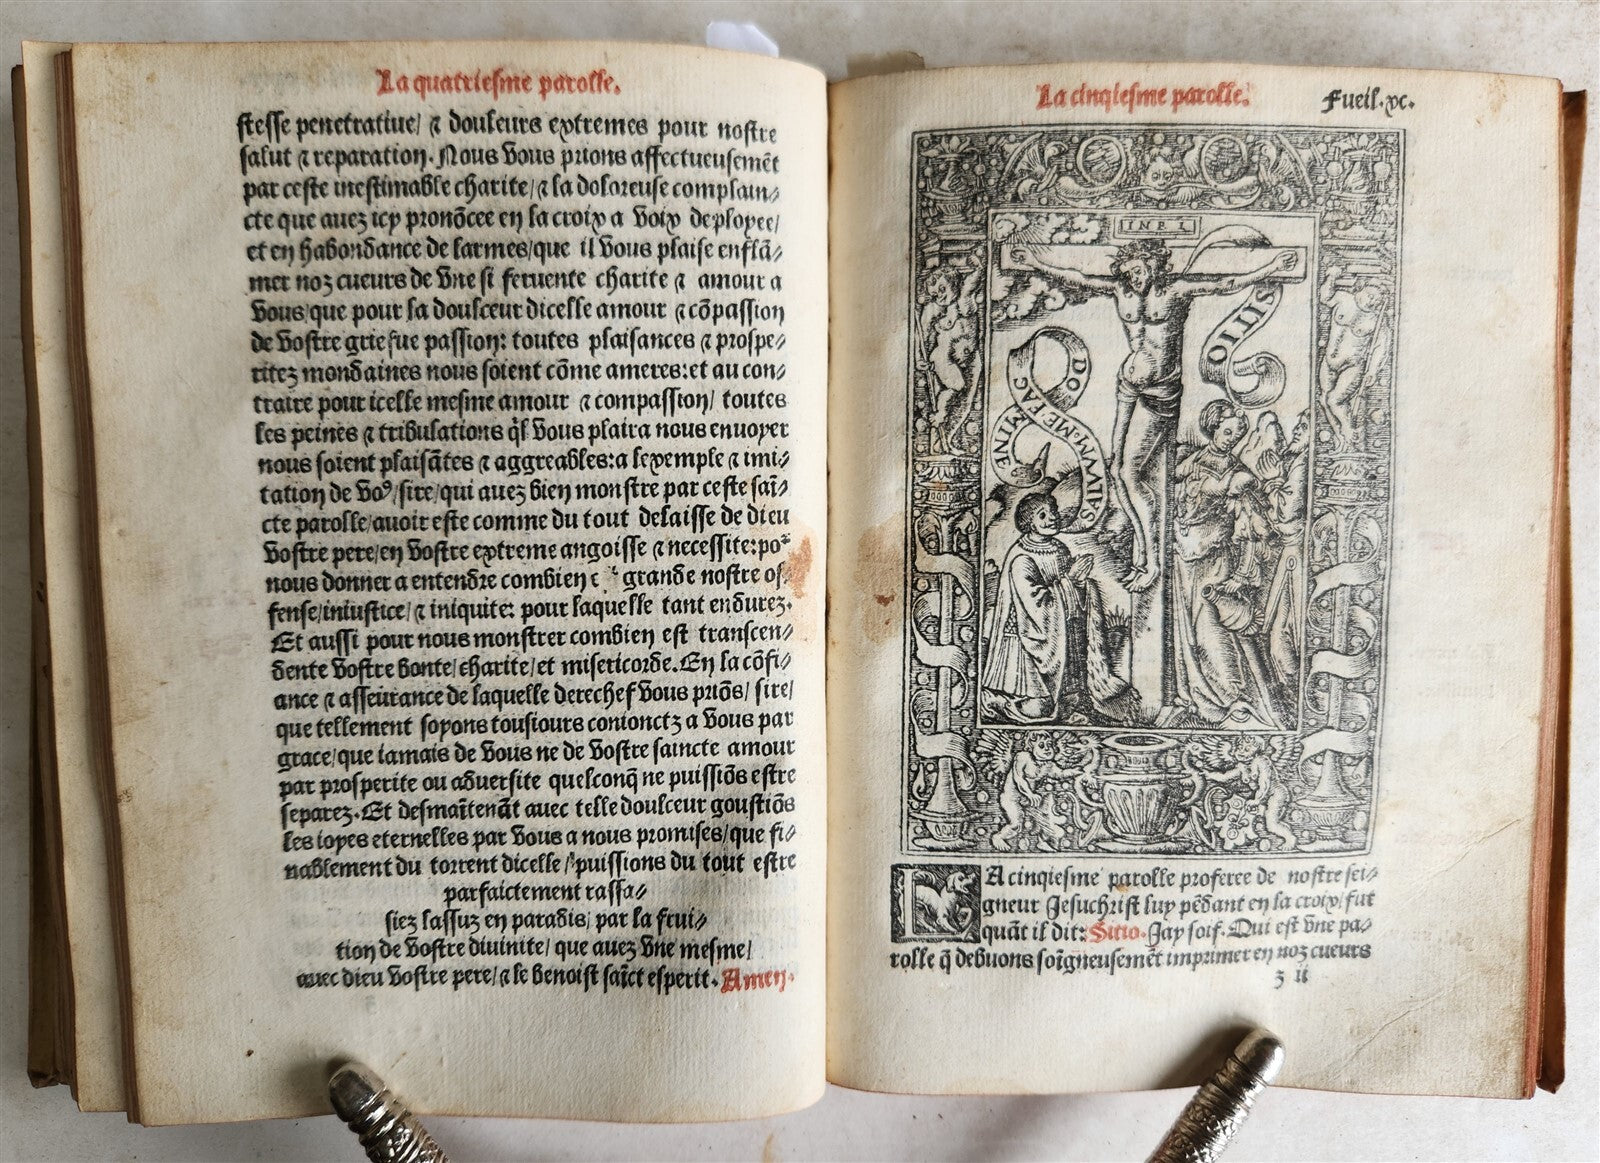 La quatriesme parolle.
stesse penetratiue/ ⁊ douleurs extremes pour nostre
salut ⁊ reparation. Nous vous prions affectueusemẽt
par ceste inestimable charite/⁊ la doloreuse complain⸗
cte que auez icy pronõcee en la croix a voix deployee/
et en habondance de larmes/que il vous plaise enflã⸗
mer noz cueurs de vne si feruente charite ⁊ amour a
vous/que pour la doulceur dicelle amour ⁊ cõpassion
de vostre griefue passion: toutes plaisances ⁊ prospe⸗
ritez mondaines nous soient cõme ameres: et au con⸗
traire pour icelle mesme amour ⁊ compassion/ toutes
les peines ⁊ tribulations q̃l vous plaira nous enuoyer
nous soient plaisãtes ⁊ aggreables: a lexemple ⁊ imi⸗
tation de voꝰ/sire/qui auez bien monstre par ceste saĩ⸗
cte parolle/auoir este comme du tout delaisse de dieu
vostre pere/en vostre extreme angoisse ⁊ necessite: poᷣ
nous donner a entendre combien grande nostre of⸗
fense/iniustice/⁊ iniquite: pour laquelle tant endurez.
Et aussi pour nous monstrer combien est transcen⸗
dente vostre bonte/charite/et misericorde. En la cõfi⸗
ance ⁊ asseurance de laquelle derechef vous priõs/ sire/
que tellement soyons tousiours conionctz a vous par
grace/que iamais de vous ne de vostre saincte amour
par prosperite ou aduersite quelconq̃ ne puissiõs estre
separez. Et desmaĩtenãt auec telle doulceur goustiõs
les ioyes eternelles par vous a nous promises/que fi⸗
nablement du torrent dicelle/puissions du tout estre
parfaictement rassa⸗
siez lassuz en paradis/ par la frui⸗
tion de vostre diuinite/ que auez vne mesme/
auec dieu vostre pere/⁊ le benoist saĩct esperit. Amen.
La cinqiesme parolle.
Fueil.xc.
INRI
SITIO
DOMINE
SALVVM·ME FAC
LA cinqiesme parolle proferee de nostre sei⸗
gneur Jesuchrist luy pẽdant en la croix/fut
quãt il dit: Sitio. Jay soif. Qui est vne pa⸗
rolle q̃ debuons soĩgneusemẽt imprimer en noz cueurs
z ii